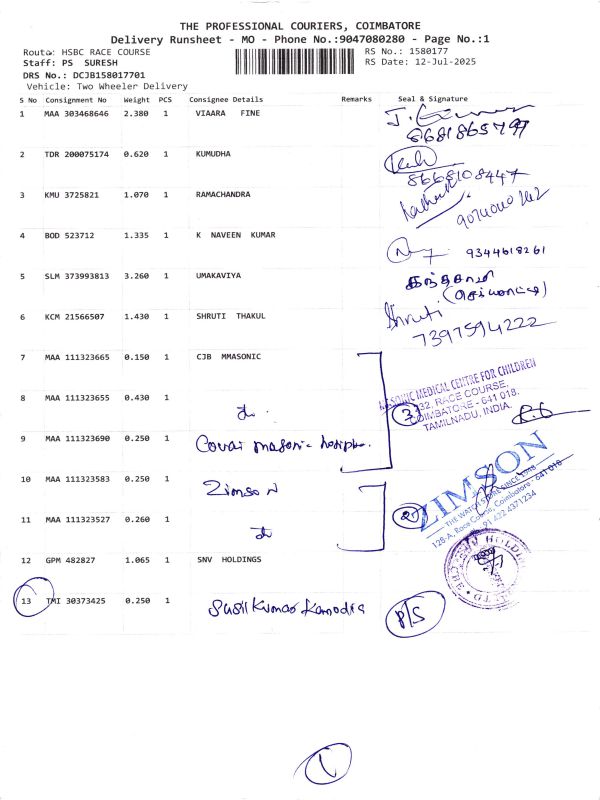 THE PROFESSIONAL COURIERS, COIMBATORE
Delivery Runsheet - MO - Phone No.:9047080280 - Page No.:1
Route: HSBC RACE COURSE
RS No.: 1580177
Staff: PS SURESH
RS Date: 12-Jul-2025
DRS No.: DCJB158017701
Vehicle: Two Wheeler Delivery
S No Consignment No Weight PCS Consignee Details Remarks Seal & Signature
1 MAA 303468646 2.380 1 VIAARA FINE
2 TDR 200075174 0.620 1 KUMUDHA
8668108447
3 KMU 3725821 1.070 1 RAMACHANDRA
4 BOD 523712 1.335 1 K NAVEEN KUMAR
9344618261
5 SLM 373993813 3.260 1 UMAKAVIYA
கந்தசாமி
6 KCM 21566507 1.430 1 SHRUTI THAKUL
Shruti
7397594222
7 MAA 111323665 0.150 1 CJB MMASONIC
8 MAA 111323655 0.430 1
3
MEDICAL CENTRE FOR CHILDREN
132, RACE COURSE,
COIMBATORE - 641 018.
TAMILNADU, INDIA.
9 MAA 111323690 0.250 1 Covai masonic
10 MAA 111323583 0.250 1 Zimson
11 MAA 111323527 0.260 1
2
ZIMSON
THE WATCH STORE SINCE 1948
128-A, Race Course, Coimbatore - 641 018
91 422 4371234
12 GPM 482827 1.065 1 SNV HOLDINGS
13 TMI 30373425 0.250 1 Susil Kumar Kanodia P/S
1